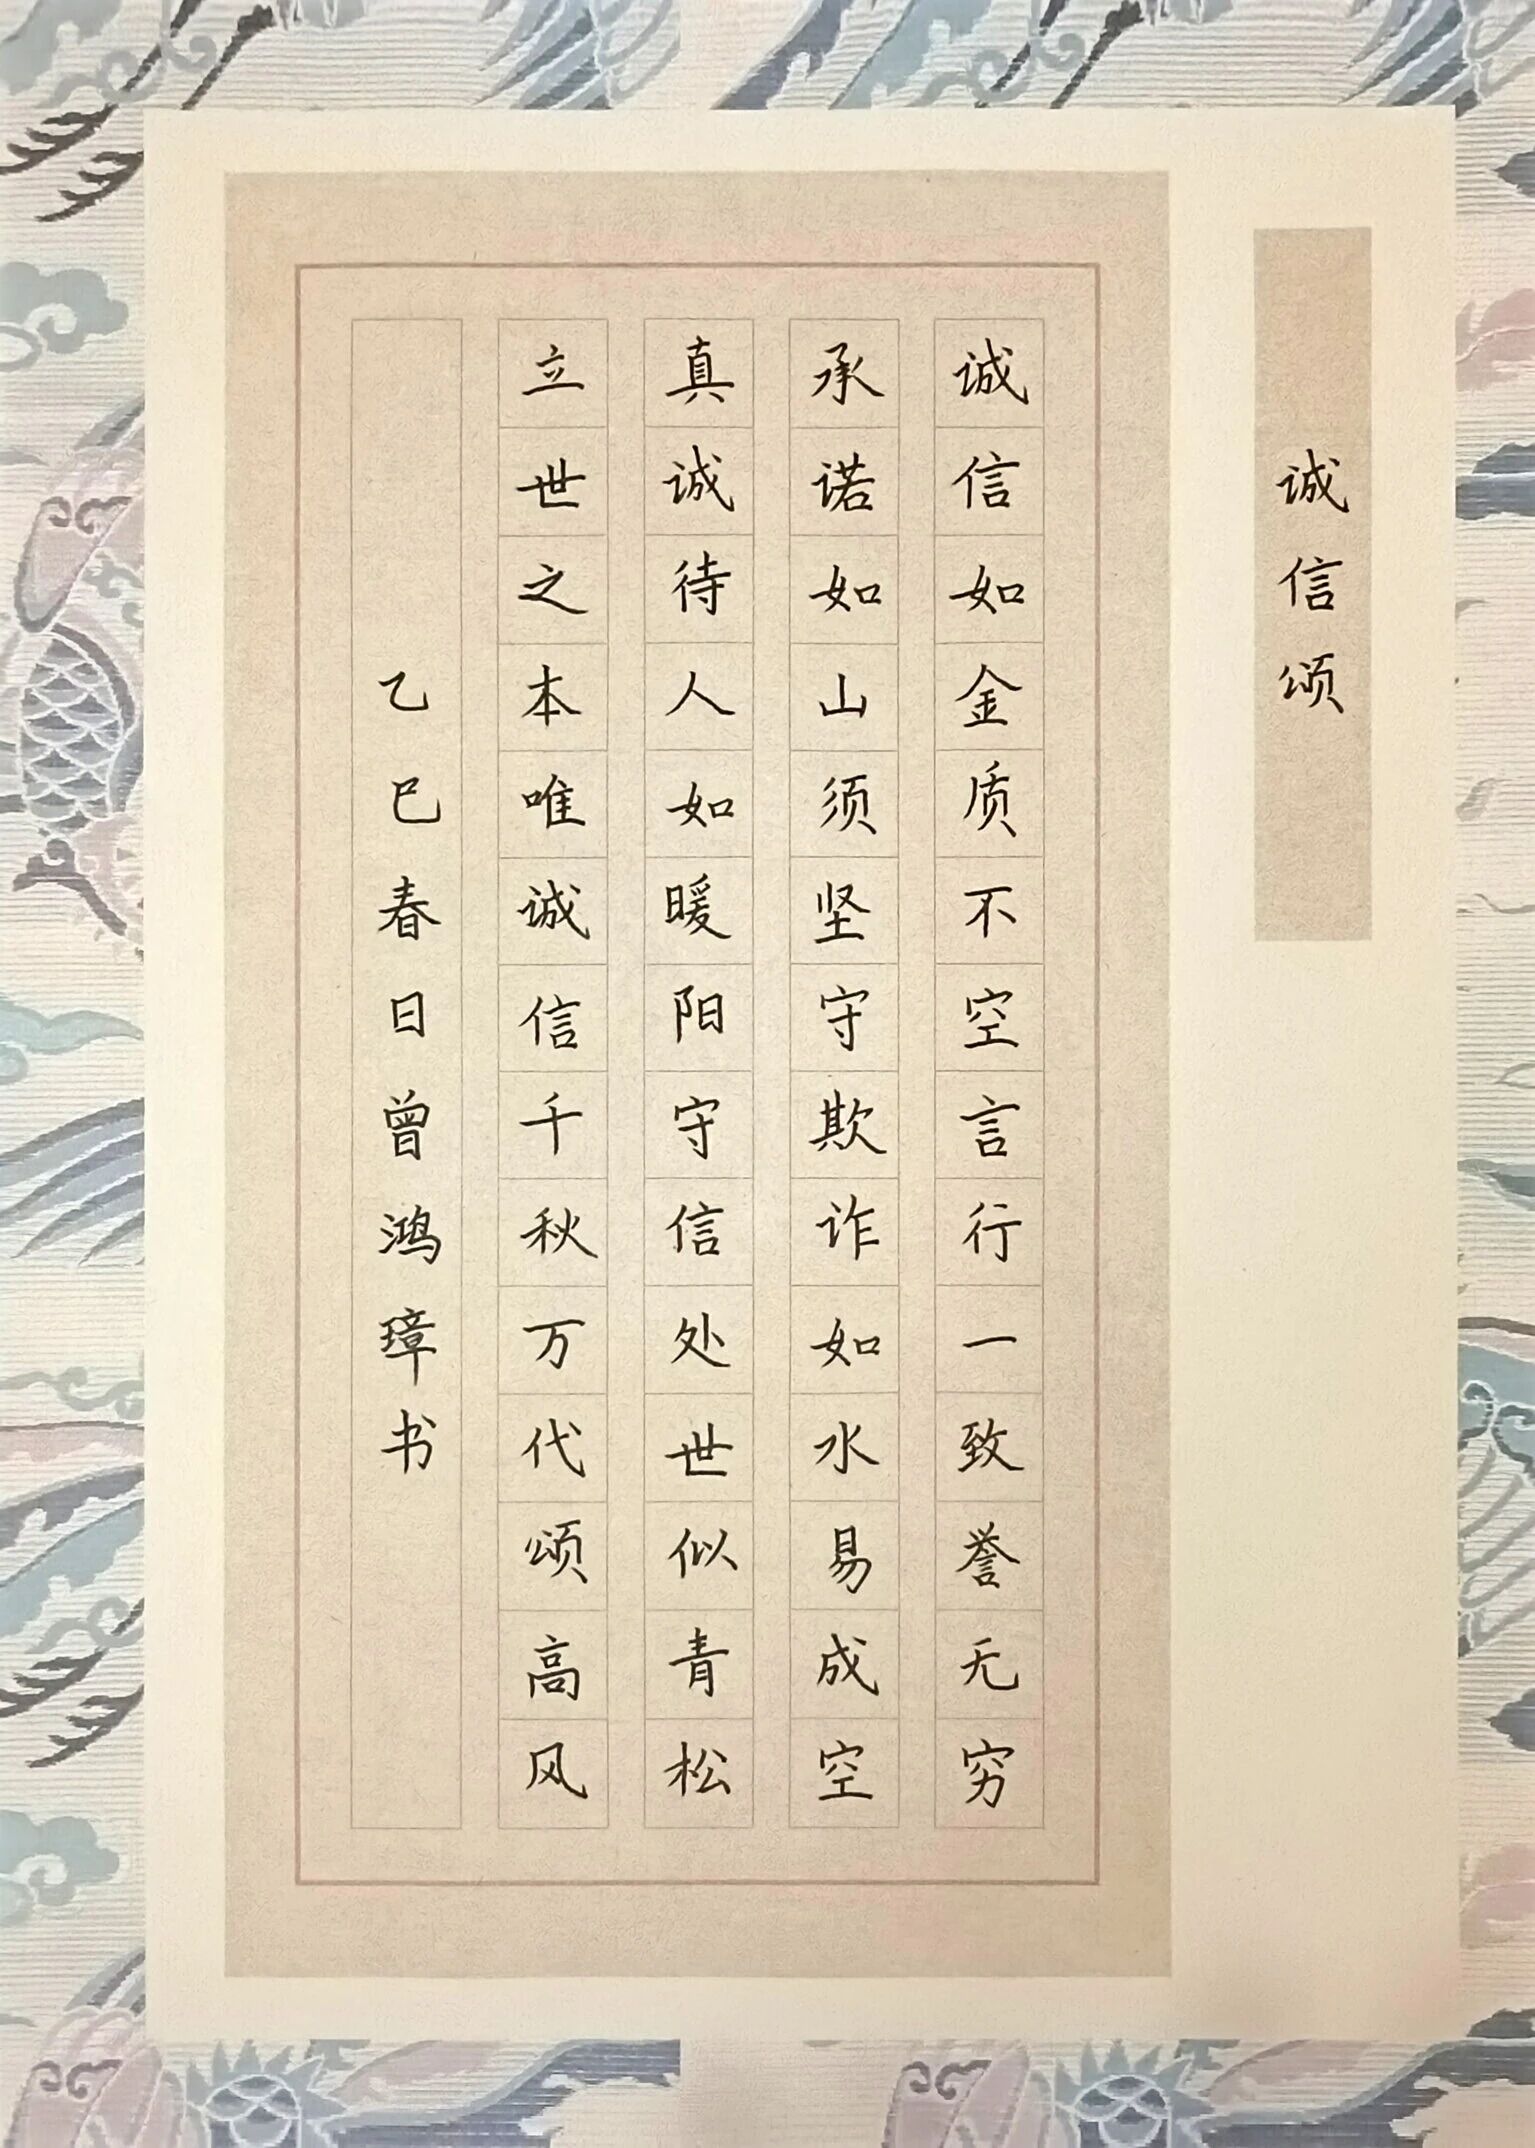 诚信颂
诚信如金质不空言行一致誉无穷
承诺如山须坚守欺诈如水易成空
真诚待人如暖阳守信处世似青松
立世之本唯诚信千秋万代颂高风
乙巳春日曾鸿璋书